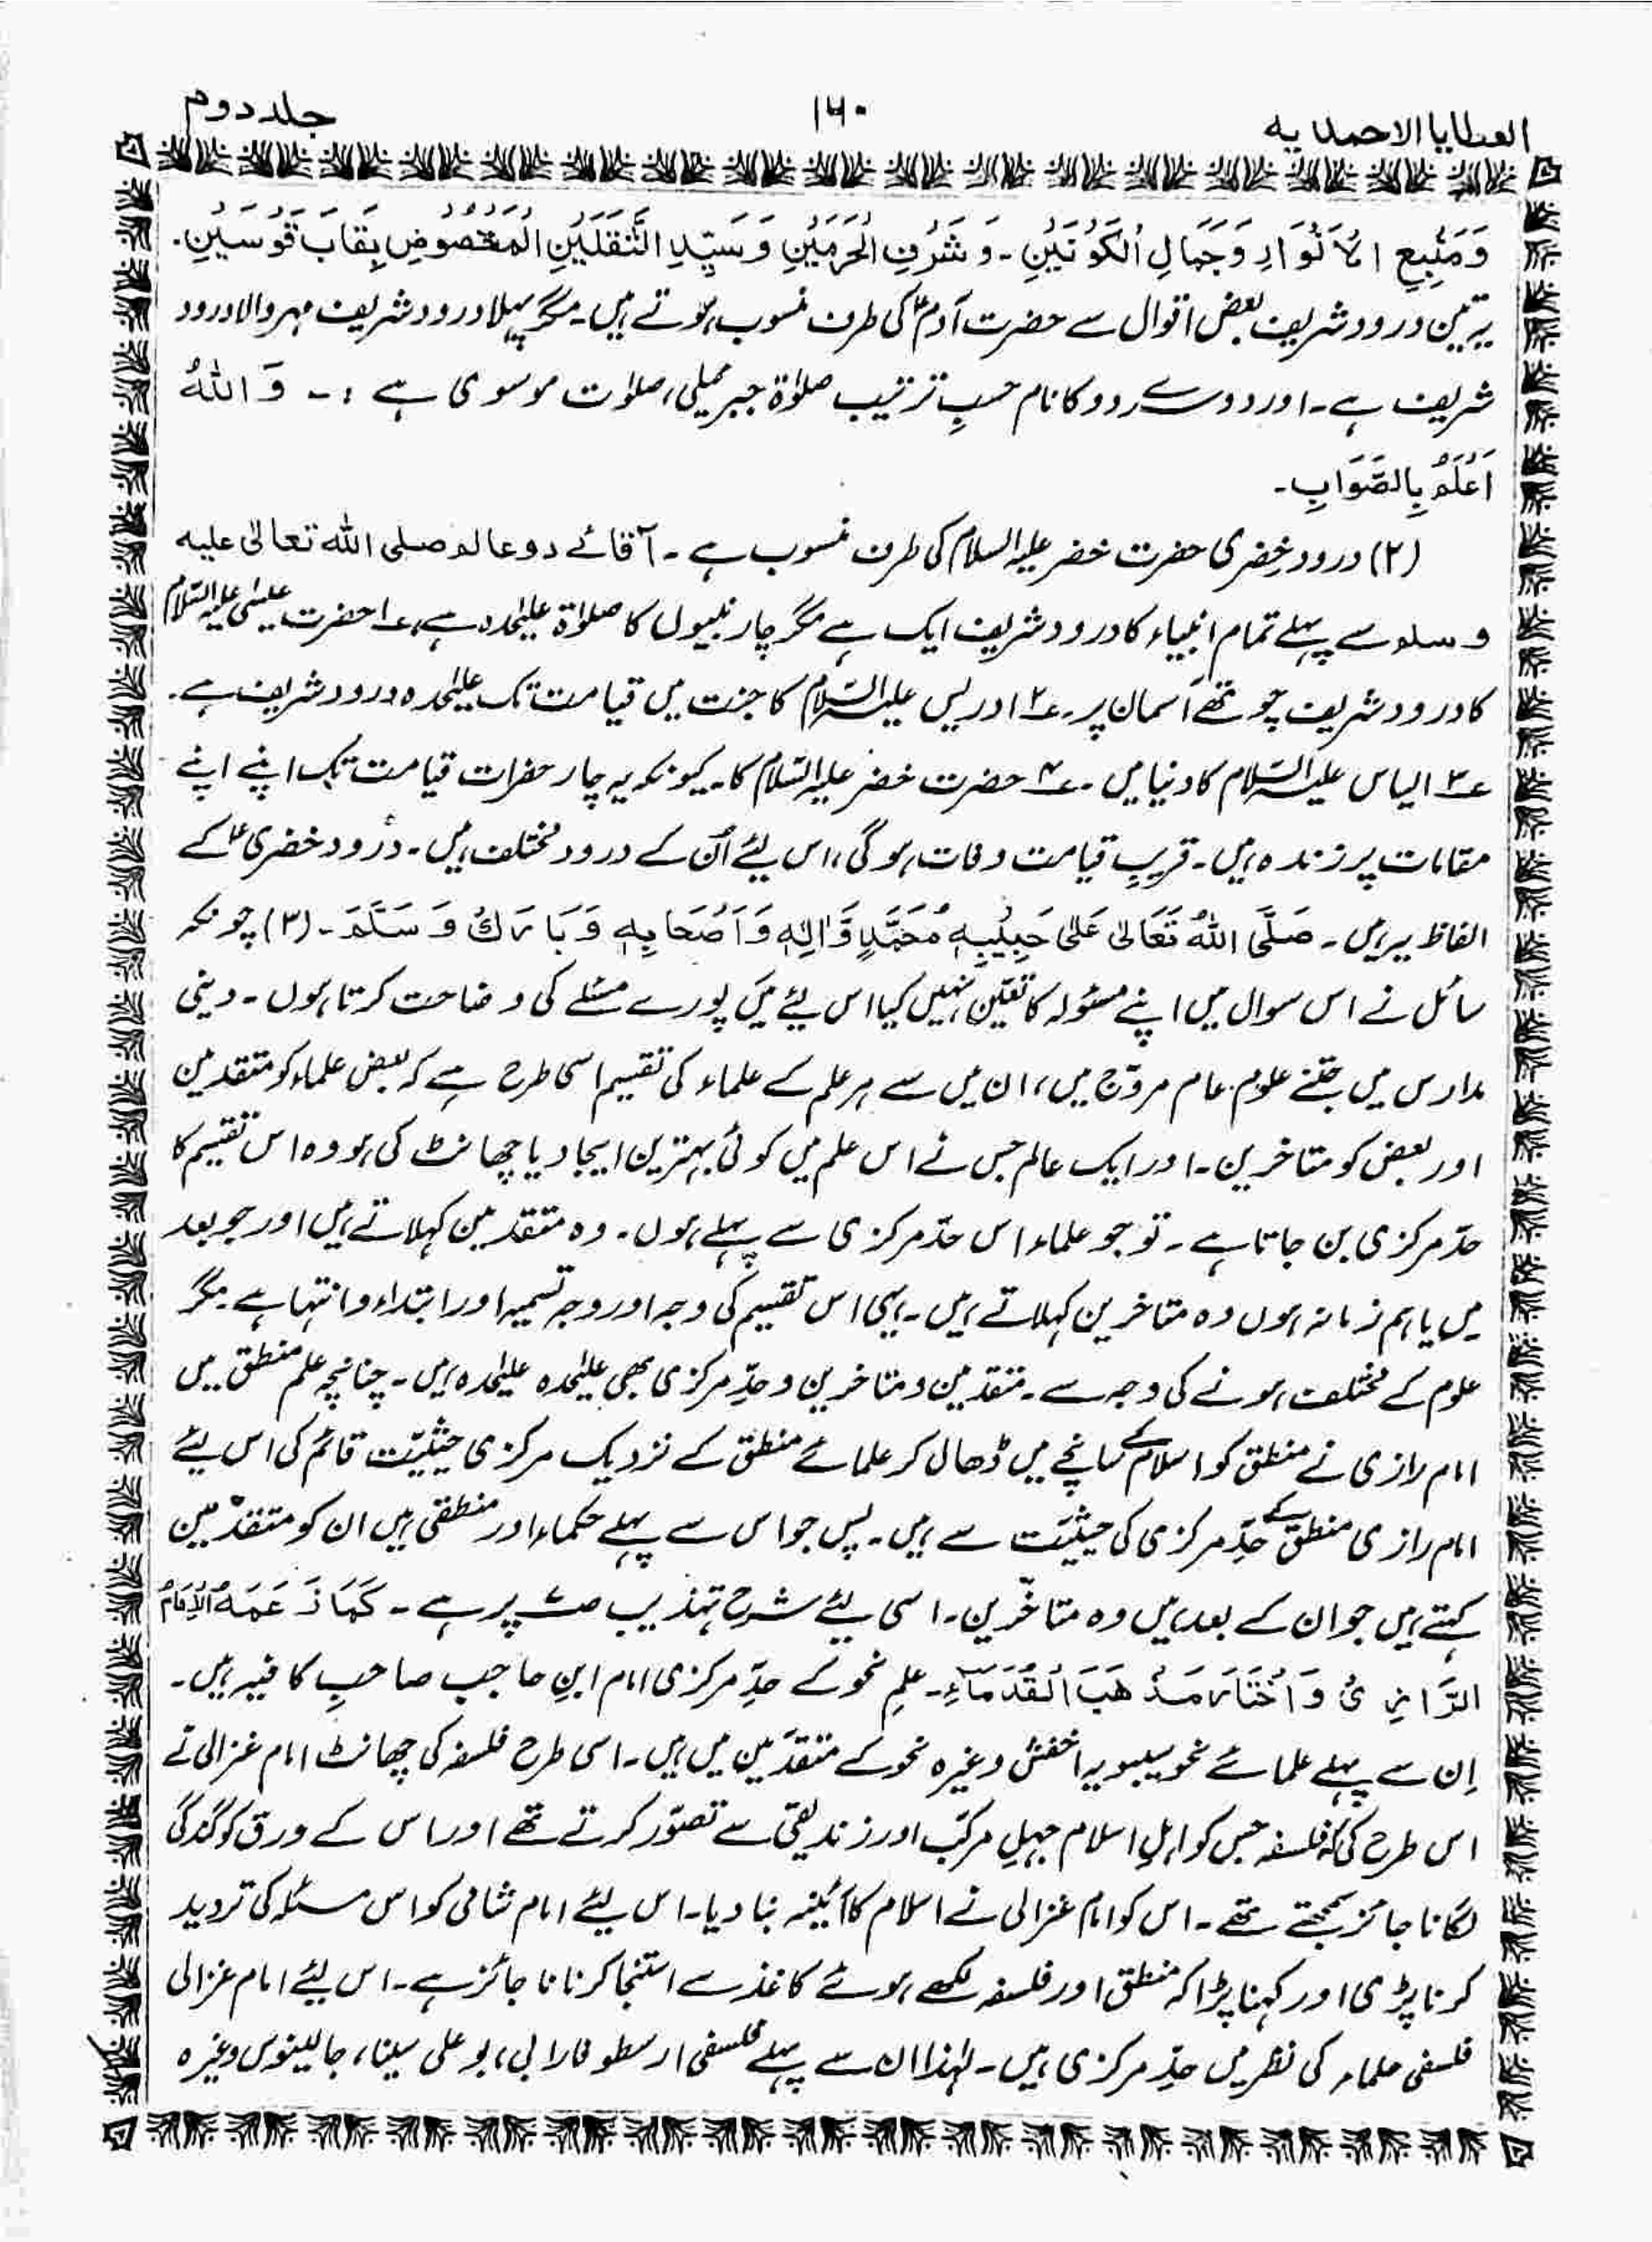 العطایا الاحمدیه ۱۶۰ جلد دوم
وَمَنْبِعِ الْاَنْوَارِ وَجَمَالِ الْکَوْنَیْنِ ۔ وَشَرْفِ الْحَرَمَیْنِ وَسَیِّدِ الثَّقَلَیْنِ الْمَخْصُوْصِ بِقَابَ قَوْسَیْنِ۔
یہ تین درود شریف بعض اقوال سے حضرت آدمؑ کی طرف منسوب ہوتے ہیں۔ مگر پہلا درود شریف مہر والا درود
شریف ہے۔ اور دوسرے دو کا نام حسبِ ترتیب صلوٰۃ جبرئیلی، صلوٰت موسوی ہے :۔ وَاللہُ
اَعْلَمُ بِالصَّوَابِ۔
(۲) درود خِضری حضرت خضر علیہ السلام کی طرف منسوب ہے ۔ آقائے دو عالم صلی اللہ تعالیٰ علیہ
وسلم سے پہلے تمام انبیاء کا درود شریف ایک ہے مگر چار نبیوں کا صلوٰۃ علیٰحدہ ہے، ؏۱ حضرت عیسٰی علیہ السّلام
کا درود شریف چوتھے آسمان پر ۔ ؏۲ ادریس علیہ السّلام کا جنت میں قیامت تک علیٰحدہ درود شریف ہے۔
؏۳ الیاس علیہ السّلام کا دنیا میں ۔ ؏۴ حضرت خضر علیہ السّلام کا۔ کیونکہ یہ چار حضرات قیامت تک اپنے اپنے
مقامات پر زندہ ہیں۔ قریبِ قیامت وفات ہوگی، اس لیئے اُن کے درود مختلف ہیں۔ درود خضریؑ کے
الفاظ یہ ہیں۔ صَلَّی اللہُ تَعَالیٰ عَلیٰ حَبِیْبِہٖ مُحَمَّدٍ وَّاٰلِہٖ وَاَصْحَابِہٖ وَبَارَکْ وَسَلَّمَ۔ (۳) چونکہ
سائل نے اس سوال میں اپنے مسئولہ کا تعیّن نہیں کیا اس لیئے میں پورے مسئلے کی وضاحت کرتا ہوں ۔ دینی
مدارس میں جتنے علوم عام مروّج ہیں، ان میں سے ہر علم کے علماء کی تقسیم اسی طرح ہے کہ بعض علماء کو متقدمین
اور بعض کو متاخرین۔ اور ایک عالم جس نے اس علم میں کوئی بہترین ایجاد یا چھانٹ کی ہو وہ اس تقسیم کا
حدّ مرکزی بن جاتا ہے۔ تو جو علماء اس حدّ مرکزی سے پہلے ہوں۔ وہ متقدمین کہلاتے ہیں اور جو بعد
میں یا ہم زمانہ ہوں وہ متاخرین کہلاتے ہیں۔ یہی اس تقسیم کی وجہ اور وجہ تسمیہ اور ابتداء و انتہا ہے۔ مگر
علوم کے مختلف ہونے کی وجہ سے ۔ متقدمین و متاخرین و حدِّ مرکزی بھی علیٰحدہ علیٰحدہ ہیں۔ چنانچہ علم منطق میں
امام رازی نے منطق کو اسلام کے سانچے میں ڈھال کر علمائے منطق کے نزدیک مرکزی حیثیّت قائم کی اس لیئے
امام رازی منطق کے حدِّ مرکزی کی حیثیّت سے ہیں۔ پس جو اس سے پہلے حکماء اور منطقی ہیں ان کو متقدّمین
کہتے ہیں جو ان کے بعد ہیں وہ متاخّرین۔ اسی لیئے شرح تہذیب صـ پر ہے ۔ کَمَا زَعَمَہُ الْاِمَامُ
الرَّازِیُّ وَاخْتَارَ مَذْہَبَ الْقُدَمَآءِ۔ علمِ نحو کے حدِّ مرکزی امام ابنِ حاجب صاحبِ کافیہ ہیں۔
اِن سے پہلے علمائے نحو سیبویہ اخفش وغیرہ نحو کے متقدّمین میں ہیں۔ اسی طرح فلسفہ کی چھانٹ امام غزالی نے
اس طرح کی کہ فلسفہ جس کو اہلِ اسلام جہلِ مرکّب اور زندیقی سے تصوّر کرتے تھے اور اس کے ورق کو گندگی
لگانا جائز سمجھتے تھے۔ اس کو امام غزالی نے اسلام کا آئینہ بنا دیا۔ اس لیئے امام شامی کو اس مسئلہ کی تردید
کرنا پڑی اور کہنا پڑا کہ منطق اور فلسفہ لکھے ہوئے کاغذ سے استنجا کرنا نا جائز ہے۔ اس لیئے امام غزالی
فلسفی علماء کی نظر میں حدِّ مرکزی ہیں۔ لہٰذا ان سے پہلے فلسفی ارسطو فارابی، بو علی سینا، جالینوس وغیرہ